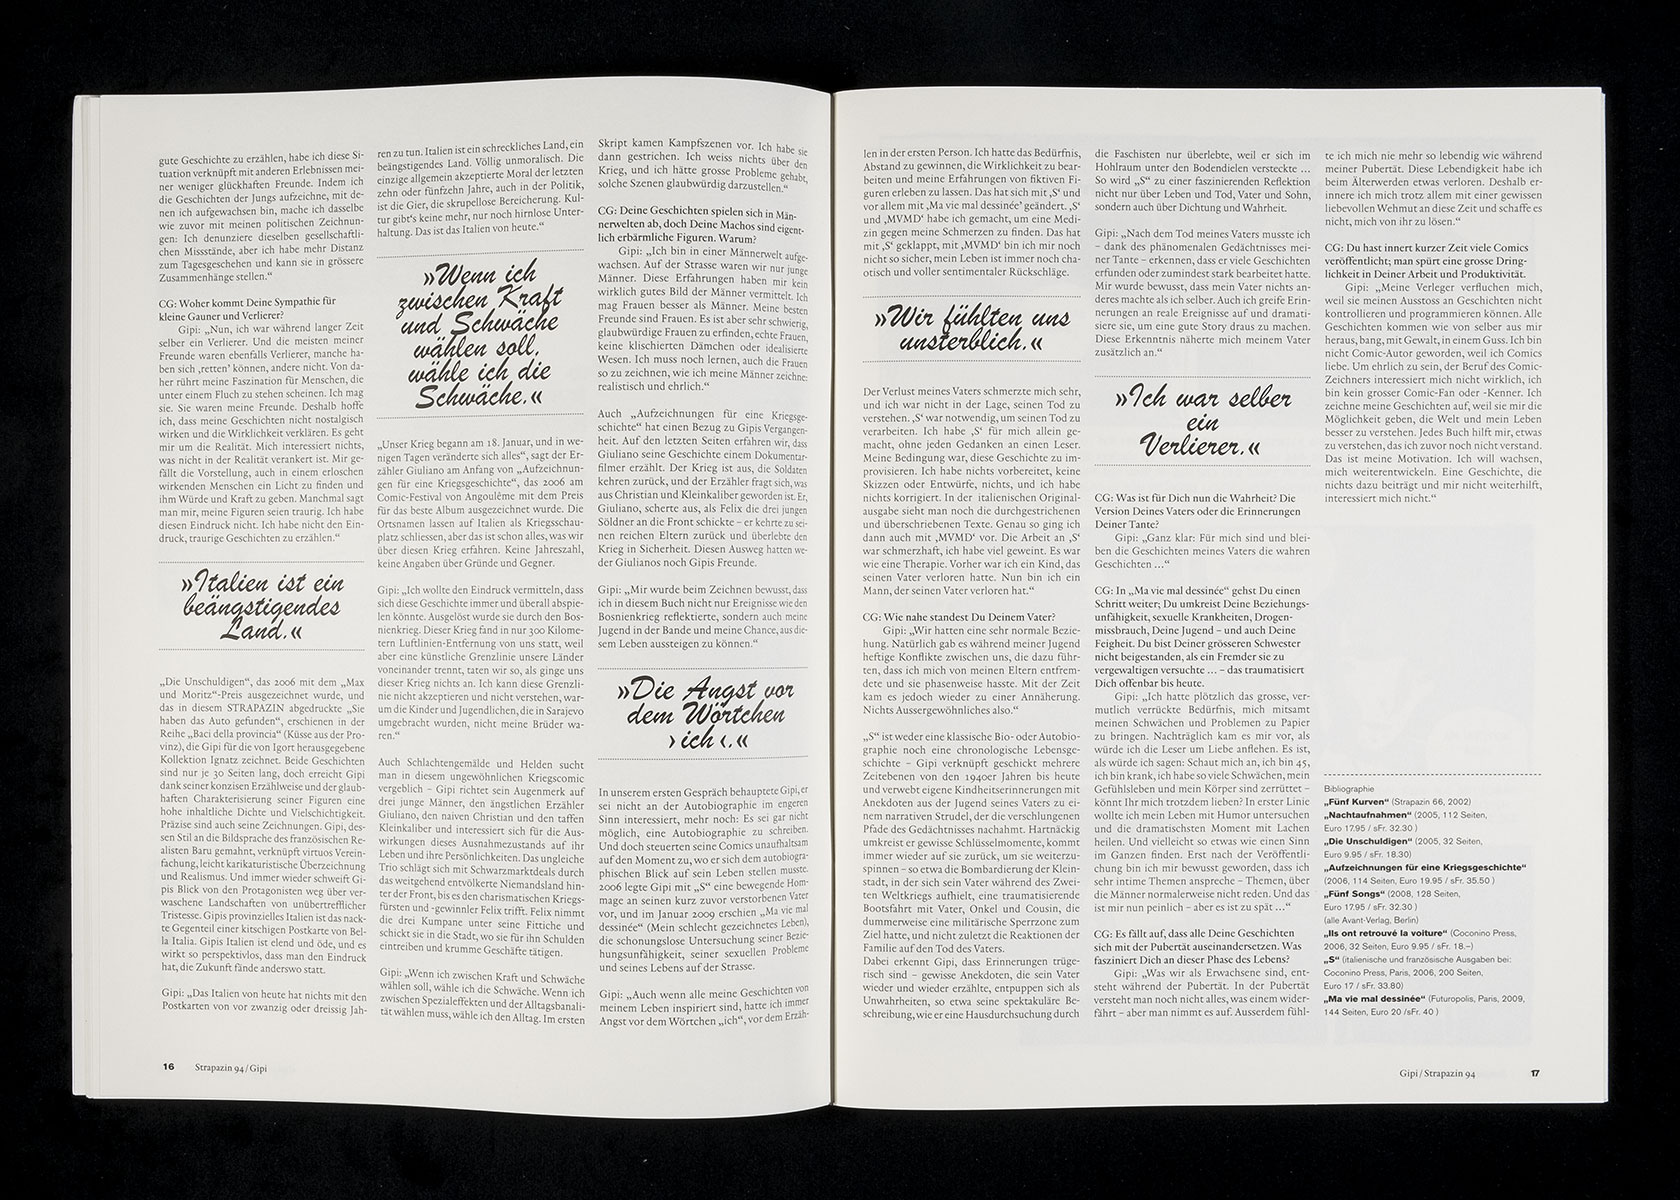 gute Geschichte zu erzählen, habe ich diese Si-
tuation verknüpft mit anderen Erlebnissen mei-
ner weniger glückhaften Freunde. Indem ich
die Geschichten der Jungs aufzeichne, mit de-
nen ich aufgewachsen bin, mache ich dasselbe
wie zuvor mit meinen politischen Zeichnun-
gen: Ich denunziere dieselben gesellschaftli-
chen Missstände, aber ich habe mehr Distanz
zum Tagesgeschehen und kann sie in grössere
Zusammenhänge stellen.“
CG: Woher kommt Deine Sympathie für
kleine Gauner und Verlierer?
Gipi: „Nun, ich war während langer Zeit
selber ein Verlierer. Und die meisten meiner
Freunde waren ebenfalls Verlierer, manche ha-
ben sich ‚retten‘ können, andere nicht. Von da-
her rührt meine Faszination für Menschen, die
unter einem Fluch zu stehen scheinen. Ich mag
sie. Sie waren meine Freunde. Deshalb hoffe
ich, dass meine Geschichten nicht nostalgisch
wirken und die Wirklichkeit verklären. Es geht
mir um die Realität. Mich interessiert nichts,
was nicht in der Realität verankert ist. Mir ge-
fällt die Vorstellung, auch in einem erloschen
wirkenden Menschen ein Licht zu finden und
ihm Würde und Kraft zu geben. Manchmal sagt
man mir, meine Figuren seien traurig. Ich habe
diesen Eindruck nicht. Ich habe nicht den Ein-
druck, traurige Geschichten zu erzählen.“
»Italien ist ein
beängstigendes
Land.«
„Die Unschuldigen“, das 2006 mit dem „Max
und Moritz“-Preis ausgezeichnet wurde, und
das in diesem STRAPAZIN abgedruckte „Sie
haben das Auto gefunden“, erschienen in der
Reihe „Baci della provincia“ (Küsse aus der Pro-
vinz), die Gipi für die von Igort herausgegebene
Kollektion Ignatz zeichnet. Beide Geschichten
sind nur je 30 Seiten lang, doch erreicht Gipi
dank seiner konzisen Erzählweise und der glaub-
haften Charakterisierung seiner Figuren eine
hohe inhaltliche Dichte und Vielschichtigkeit.
Präzise sind auch seine Zeichnungen. Gipi, des-
sen Stil an die Bildsprache des französischen Re-
alisten Baru gemahnt, verknüpft virtuos Verein-
fachung, leicht karikaturistische Überzeichnung
und Realismus. Und immer wieder schweift Gi-
pis Blick von den Protagonisten weg über ver-
waschene Landschaften von unübertrefflicher
Tristesse. Gipis provinzielles Italien ist das nack-
te Gegenteil einer kitschigen Postkarte von Bel-
la Italia. Gipis Italien ist elend und öde, und es
wirkt so perspektivlos, dass man den Eindruck
hat, die Zukunft fände anderswo statt.
Gipi: „Das Italien von heute hat nichts mit den
Postkarten von vor zwanzig oder dreissig Jah-
ren zu tun. Italien ist ein schreckliches Land, ein
beängstigendes Land. Völlig unmoralisch. Die
einzige allgemein akzeptierte Moral der letzten
zehn oder fünfzehn Jahre, auch in der Politik,
ist die Gier, die skrupellose Bereicherung. Kul-
tur gibt‘s keine mehr, nur noch hirnlose Unter-
haltung. Das ist das Italien von heute.“
»Wenn ich
zwischen Kraft
und Schwäche
wählen soll,
wähle ich die
Schwäche.«
„Unser Krieg begann am 18. Januar, und in we-
nigen Tagen veränderte sich alles“, sagt der Er-
zähler Giuliano am Anfang von „Aufzeichnun-
gen für eine Kriegsgeschichte“, das 2006 am
Comic-Festival von Angoulême mit dem Preis
für das beste Album ausgezeichnet wurde. Die
Ortsnamen lassen auf Italien als Kriegsschau-
platz schliessen, aber das ist schon alles, was wir
über diesen Krieg erfahren. Keine Jahreszahl,
keine Angaben über Gründe und Gegner.
Gipi: „Ich wollte den Eindruck vermitteln, dass
sich diese Geschichte immer und überall abspie-
len könnte. Ausgelöst wurde sie durch den Bos-
nienkrieg. Dieser Krieg fand in nur 300 Kilome-
tern Luftlinien-Entfernung von uns statt, weil
aber eine künstliche Grenzlinie unsere Länder
voneinander trennt, taten wir so, als ginge uns
dieser Krieg nichts an. Ich kann diese Grenzli-
nie nicht akzeptieren und nicht verstehen, war-
um die Kinder und Jugendlichen, die in Sarajevo
umgebracht wurden, nicht meine Brüder wa-
ren.“
Auch Schlachtengemälde und Helden sucht
man in diesem ungewöhnlichen Kriegscomic
vergeblich – Gipi richtet sein Augenmerk auf
drei junge Männer, den ängstlichen Erzähler
Giuliano, den naiven Christian und den taffen
Kleinkaliber und interessiert sich für die Aus-
wirkungen dieses Ausnahmezustands auf ihr
Leben und ihre Persönlichkeiten. Das ungleiche
Trio schlägt sich mit Schwarzmarktdeals durch
das weitgehend entvölkerte Niemandsland hin-
ter der Front, bis es den charismatischen Kriegs-
fürsten und -gewinnler Felix trifft. Felix nimmt
die drei Kumpane unter seine Fittiche und
schickt sie in die Stadt, wo sie für ihn Schulden
eintreiben und krumme Geschäfte tätigen.
Gipi: „Wenn ich zwischen Kraft und Schwäche
wählen soll, wähle ich die Schwäche. Wenn ich
zwischen Spezialeffekten und der Alltagsbanali-
tät wählen muss, wähle ich den Alltag. Im ersten
Skript kamen Kampfszenen vor. Ich habe sie
dann gestrichen. Ich weiss nichts über den
Krieg, und ich hätte grosse Probleme gehabt,
solche Szenen glaubwürdig darzustellen.“
CG: Deine Geschichten spielen sich in Män-
nerwelten ab, doch Deine Machos sind eigent-
lich erbärmliche Figuren. Warum?
Gipi: „Ich bin in einer Männerwelt aufge-
wachsen. Auf der Strasse waren wir nur junge
Männer. Diese Erfahrungen haben mir kein
wirklich gutes Bild der Männer vermittelt. Ich
mag Frauen besser als Männer. Meine besten
Freunde sind Frauen. Es ist aber sehr schwierig,
glaubwürdige Frauen zu erfinden, echte Frauen,
keine klischierten Dämchen oder idealisierte
Wesen. Ich muss noch lernen, auch die Frauen
so zu zeichnen, wie ich meine Männer zeichne:
realistisch und ehrlich.“
Auch „Aufzeichnungen für eine Kriegsge-
schichte“ hat einen Bezug zu Gipis Vergangen-
heit. Auf den letzten Seiten erfahren wir, dass
Giuliano seine Geschichte einem Dokumentar-
filmer erzählt. Der Krieg ist aus, die Soldaten
kehren zurück, und der Erzähler fragt sich, was
aus Christian und Kleinkaliber geworden ist. Er,
Giuliano, scherte aus, als Felix die drei jungen
Söldner an die Front schickte – er kehrte zu sei-
nen reichen Eltern zurück und überlebte den
Krieg in Sicherheit. Diesen Ausweg hatten we-
der Giulianos noch Gipis Freunde.
Gipi: „Mir wurde beim Zeichnen bewusst, dass
ich in diesem Buch nicht nur Ereignisse wie den
Bosnienkrieg reflektierte, sondern auch meine
Jugend in der Bande und meine Chance, aus die-
sem Leben aussteigen zu können.“
»Die Angst vor
dem Wörtchen
›ich‹.«
In unserem ersten Gespräch behauptete Gipi, er
sei nicht an der Autobiographie im engeren
Sinn interessiert, mehr noch: Es sei gar nicht
möglich, eine Autobiographie zu schreiben.
Und doch steuerten seine Comics unaufhaltsam
auf den Moment zu, wo er sich dem autobiogra-
phischen Blick auf sein Leben stellen musste.
2006 legte Gipi mit „S“ eine bewegende Hom-
mage an seinen kurz zuvor verstorbenen Vater
vor, und im Januar 2009 erschien „Ma vie mal
dessinée“ (Mein schlecht gezeichnetes Leben),
die schonungslose Untersuchung seiner Bezie-
hungsunfähigkeit, seiner sexuellen Probleme
und seines Lebens auf der Strasse.
Gipi: „Auch wenn alle meine Geschichten von
meinem Leben inspiriert sind, hatte ich immer
Angst vor dem Wörtchen „ich“, vor dem Erzäh-
16 Strapazin 94 / Gipi
len in der ersten Person. Ich hatte das Bedürfnis,
Abstand zu gewinnen, die Wirklichkeit zu bear-
beiten und meine Erfahrungen von fiktiven Fi-
guren erleben zu lassen. Das hat sich mit ‚S‘ und
vor allem mit ‚Ma vie mal dessinée‘ geändert. ‚S‘
und ‚MVMD‘ habe ich gemacht, um eine Medi-
zin gegen meine Schmerzen zu finden. Das hat
mit ‚S‘ geklappt, mit ‚MVMD‘ bin ich mir noch
nicht so sicher, mein Leben ist immer noch cha-
otisch und voller sentimentaler Rückschläge.
»Wir fühlten uns
unsterblich.«
Der Verlust meines Vaters schmerzte mich sehr,
und ich war nicht in der Lage, seinen Tod zu
verstehen. ‚S‘ war notwendig, um seinen Tod zu
verarbeiten. Ich habe ‚S‘ für mich allein ge-
macht, ohne jeden Gedanken an einen Leser.
Meine Bedingung war, diese Geschichte zu im-
provisieren. Ich habe nichts vorbereitet, keine
Skizzen oder Entwürfe, nichts, und ich habe
nichts korrigiert. In der italienischen Original-
ausgabe sieht man noch die durchgestrichenen
und überschriebenen Texte. Genau so ging ich
dann auch mit ‚MVMD‘ vor. Die Arbeit an ‚S‘
war schmerzhaft, ich habe viel geweint. Es war
wie eine Therapie. Vorher war ich ein Kind, das
seinen Vater verloren hatte. Nun bin ich ein
Mann, der seinen Vater verloren hat.“
CG: Wie nahe standest Du Deinem Vater?
Gipi: „Wir hatten eine sehr normale Bezie-
hung. Natürlich gab es während meiner Jugend
heftige Konflikte zwischen uns, die dazu führ-
ten, dass ich mich von meinen Eltern entfrem-
dete und sie phasenweise hasste. Mit der Zeit
kam es jedoch wieder zu einer Annäherung.
Nichts Aussergewöhnliches also.“
„S“ ist weder eine klassische Bio- oder Autobio-
graphie noch eine chronologische Lebensge-
schichte – Gipi verknüpft geschickt mehrere
Zeitebenen von den 1940er Jahren bis heute
und verwebt eigene Kindheitserinnerungen mit
Anekdoten aus der Jugend seines Vaters zu ei-
nem narrativen Strudel, der die verschlungenen
Pfade des Gedächtnisses nachahmt. Hartnäckig
umkreist er gewisse Schlüsselmomente, kommt
immer wieder auf sie zurück, um sie weiterzu-
spinnen – so etwa die Bombardierung der Klein-
stadt, in der sich sein Vater während des Zwei-
ten Weltkriegs aufhielt, eine traumatisierende
Bootsfahrt mit Vater, Onkel und Cousin, die
dummerweise eine militärische Sperrzone zum
Ziel hatte, und nicht zuletzt die Reaktionen der
Familie auf den Tod des Vaters.
Dabei erkennt Gipi, dass Erinnerungen trüge-
risch sind – gewisse Anekdoten, die sein Vater
wieder und wieder erzählte, entpuppen sich als
Unwahrheiten, so etwa seine spektakuläre Be-
schreibung, wie er eine Hausdurchsuchung durch
die Faschisten nur überlebte, weil er sich im
Hohlraum unter den Bodendielen versteckte ...
So wird „S“ zu einer faszinierenden Reflektion
nicht nur über Leben und Tod, Vater und Sohn,
sondern auch über Dichtung und Wahrheit.
Gipi: „Nach dem Tod meines Vaters musste ich
– dank des phänomenalen Gedächtnisses mei-
ner Tante – erkennen, dass er viele Geschichten
erfunden oder zumindest stark bearbeitet hatte.
Mir wurde bewusst, dass mein Vater nichts an-
deres machte als ich selber. Auch ich greife Erin-
nerungen an reale Ereignisse auf und dramati-
siere sie, um eine gute Story draus zu machen.
Diese Erkenntnis näherte mich meinem Vater
zusätzlich an.“
»Ich war selber
ein
Verlierer.«
CG: Was ist für Dich nun die Wahrheit? Die
Version Deines Vaters oder die Erinnerungen
Deiner Tante?
Gipi: „Ganz klar: Für mich sind und blei-
ben die Geschichten meines Vaters die wahren
Geschichten ...“
CG: In „Ma vie mal dessinée“ gehst Du einen
Schritt weiter; Du umkreist Deine Beziehungs-
unfähigkeit, sexuelle Krankheiten, Drogen-
missbrauch, Deine Jugend – und auch Deine
Feigheit. Du bist Deiner grösseren Schwester
nicht beigestanden, als ein Fremder sie zu
vergewaltigen versuchte ... – das traumatisiert
Dich offenbar bis heute.
Gipi: „Ich hatte plötzlich das grosse, ver-
mutlich verrückte Bedürfnis, mich mitsamt
meinen Schwächen und Problemen zu Papier
zu bringen. Nachträglich kam es mir vor, als
würde ich die Leser um Liebe anflehen. Es ist,
als würde ich sagen: Schaut mich an, ich bin 45,
ich bin krank, ich habe so viele Schwächen, mein
Gefühlsleben und mein Körper sind zerrüttet –
könnt Ihr mich trotzdem lieben? In erster Linie
wollte ich mein Leben mit Humor untersuchen
und die dramatischsten Moment mit Lachen
heilen. Und vielleicht so etwas wie einen Sinn
im Ganzen finden. Erst nach der Veröffentli-
chung bin ich mir bewusst geworden, dass ich
sehr intime Themen anspreche – Themen, über
die Männer normalerweise nicht reden. Und das
ist mir nun peinlich – aber es ist zu spät ...“
CG: Es fällt auf, dass alle Deine Geschichten
sich mit der Pubertät auseinandersetzen. Was
fasziniert Dich an dieser Phase des Lebens?
Gipi: „Was wir als Erwachsene sind, ent-
steht während der Pubertät. In der Pubertät
versteht man noch nicht alles, was einem wider-
fährt – aber man nimmt es auf. Ausserdem fühl-
te ich mich nie mehr so lebendig wie während
meiner Pubertät. Diese Lebendigkeit habe ich
beim Älterwerden etwas verloren. Deshalb er-
innere ich mich trotz allem mit einer gewissen
liebevollen Wehmut an diese Zeit und schaffe es
nicht, mich von ihr zu lösen.“
CG: Du hast innert kurzer Zeit viele Comics
veröffentlicht; man spürt eine grosse Dring-
lichkeit in Deiner Arbeit und Produktivität.
Gipi: „Meine Verleger verfluchen mich,
weil sie meinen Ausstoss an Geschichten nicht
kontrollieren und programmieren können. Alle
Geschichten kommen wie von selber aus mir
heraus, bang, mit Gewalt, in einem Guss. Ich bin
nicht Comic-Autor geworden, weil ich Comics
liebe. Um ehrlich zu sein, der Beruf des Comic-
Zeichners interessiert mich nicht wirklich, ich
bin kein grosser Comic-Fan oder -Kenner. Ich
zeichne meine Geschichten auf, weil sie mir die
Möglichkeit geben, die Welt und mein Leben
besser zu verstehen. Jedes Buch hilft mir, etwas
zu verstehen, das ich zuvor noch nicht verstand.
Das ist meine Motivation. Ich will wachsen,
mich weiterentwickeln. Eine Geschichte, die
nichts dazu beiträgt und mir nicht weiterhilft,
interessiert mich nicht.“
Bibliographie
„Fünf Kurven“ (Strapazin 66, 2002)
„Nachtaufnahmen“ (2005, 112 Seiten,
Euro 17.95 / sFr. 32.30 )
„Die Unschuldigen“ (2005, 32 Seiten,
Euro 9.95 / sFr. 18.30)
„Aufzeichnungen für eine Kriegsgeschichte“
(2006, 114 Seiten, Euro 19.95 / sFr. 35.50 )
„Fünf Songs“ (2008, 128 Seiten,
Euro 17.95 / sFr. 32.30 )
(alle Avant-Verlag, Berlin)
„Ils ont retrouvé la voiture“ (Coconino Press,
2006, 32 Seiten, Euro 9.95 / sFr. 18.–)
„S“ (italienische und französische Ausgaben bei:
Coconino Press, Paris, 2006, 200 Seiten,
Euro 17 / sFr. 33.80)
„Ma vie mal dessinée“ (Futuropolis, Paris, 2009,
144 Seiten, Euro 20 /sFr. 40 )
Gipi / Strapazin 94 17